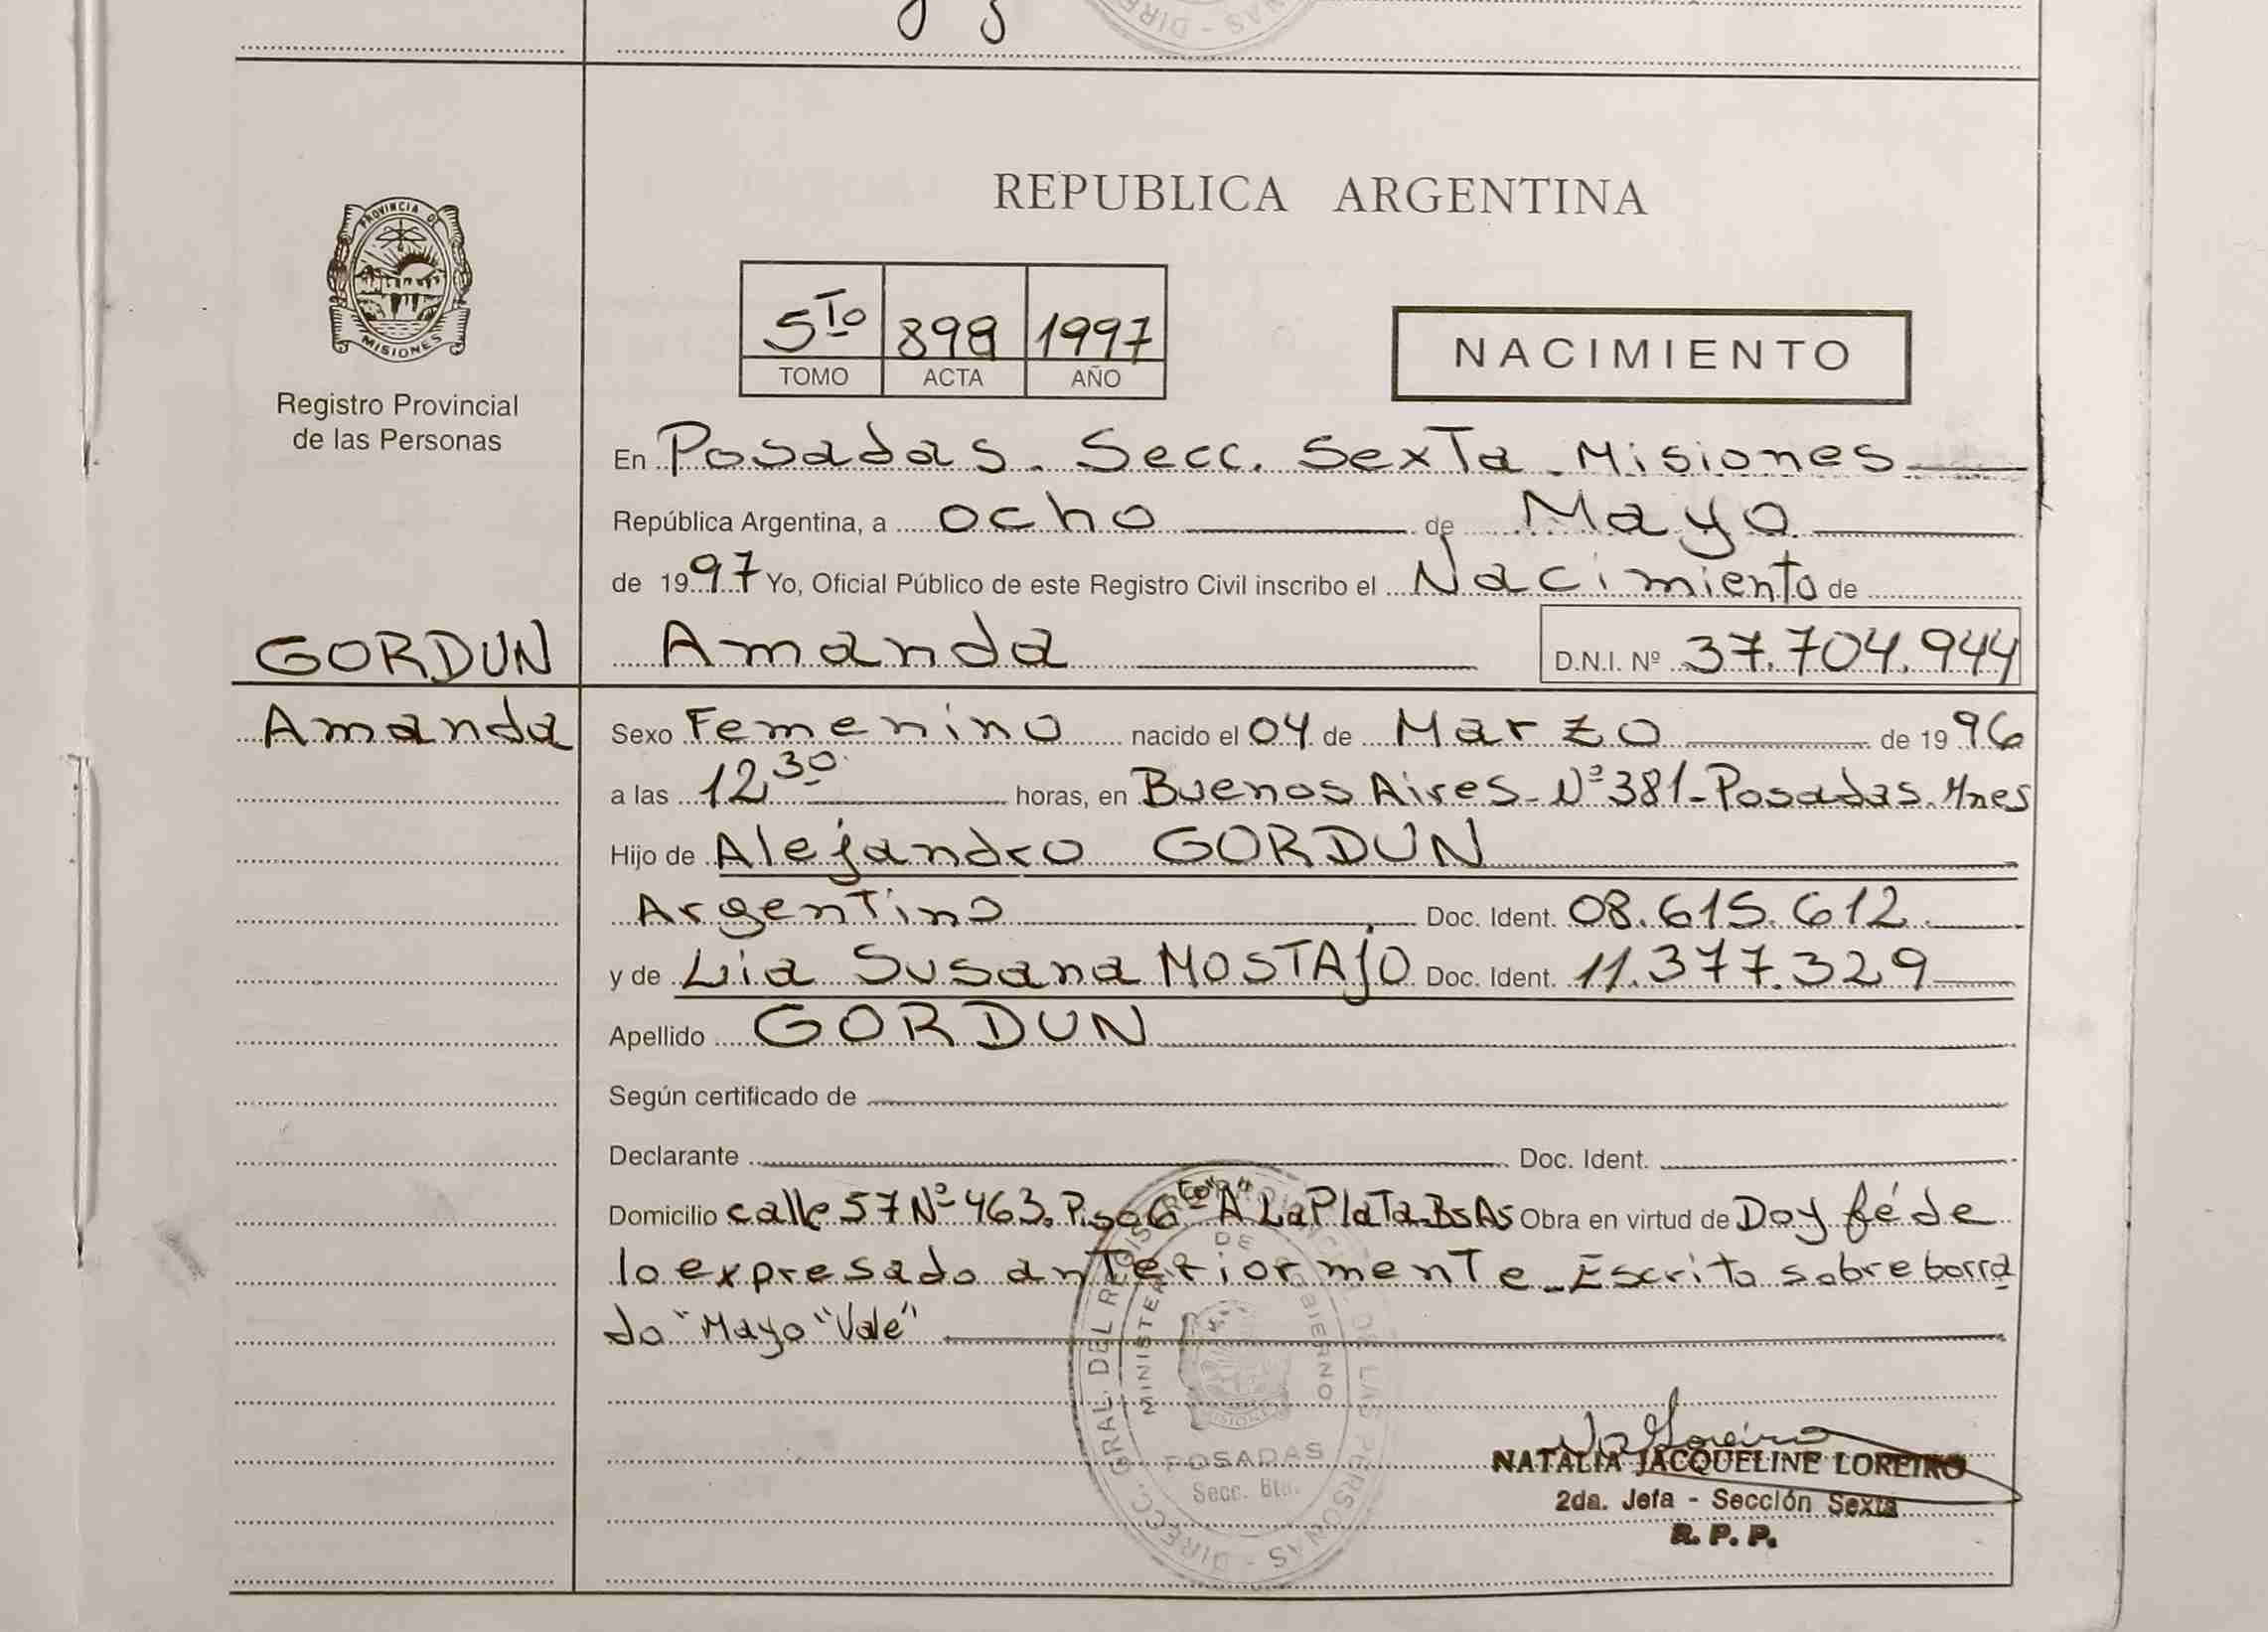 REPUBLICA ARGENTINA
PROVINCIA DE
MISIONES
Registro Provincial
de las Personas
5to 898 1997
TOMO ACTA AÑO
NACIMIENTO
En Posadas. Secc. Sexta. Misiones
República Argentina, a ocho de Mayo
de 1997 Yo, Oficial Público de este Registro Civil inscribo el Nacimiento de
GORDUN Amanda D.N.I. Nº 37.704.944
Amanda Sexo Femenino nacido el 04 de Marzo de 1996
a las 12 30 horas, en Buenos Aires - Nº 381 - Posadas. Mnes
Hijo de Alejandro GORDUN
Argentino Doc. Ident. 08.615.612.
y de Lia Susana MOSTAJO Doc. Ident. 11.377.329
Apellido GORDUN
Según certificado de
Declarante Doc. Ident.
Domicilio calle 57 Nº 463. Piso 6º A La Plata. Bs As Obra en virtud de Doy fé de
lo expresado anteriormente - Escrito sobre borra
do "Mayo" Vale"
DIRECC. GRAL. DEL REGISTRO PROVINCIAL DE LAS PERSONAS
MINISTERIO DE GOBIERNO
MISIONES
POSADAS
Secc. 6ta.
NATALIA JACQUELINE LOREIRO
2da. Jefa - Sección Sexta
R. P. P.